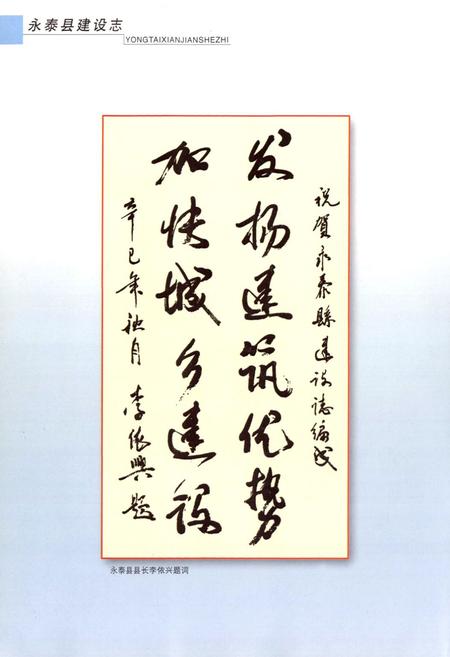 永泰县建设志
YONGTAIXIANJIANSHEZHI
祝贺永泰縣建设誌编成
发扬建筑优势
加快城乡建设
辛巳年秋月 李依興题
永泰县县长李依兴题词